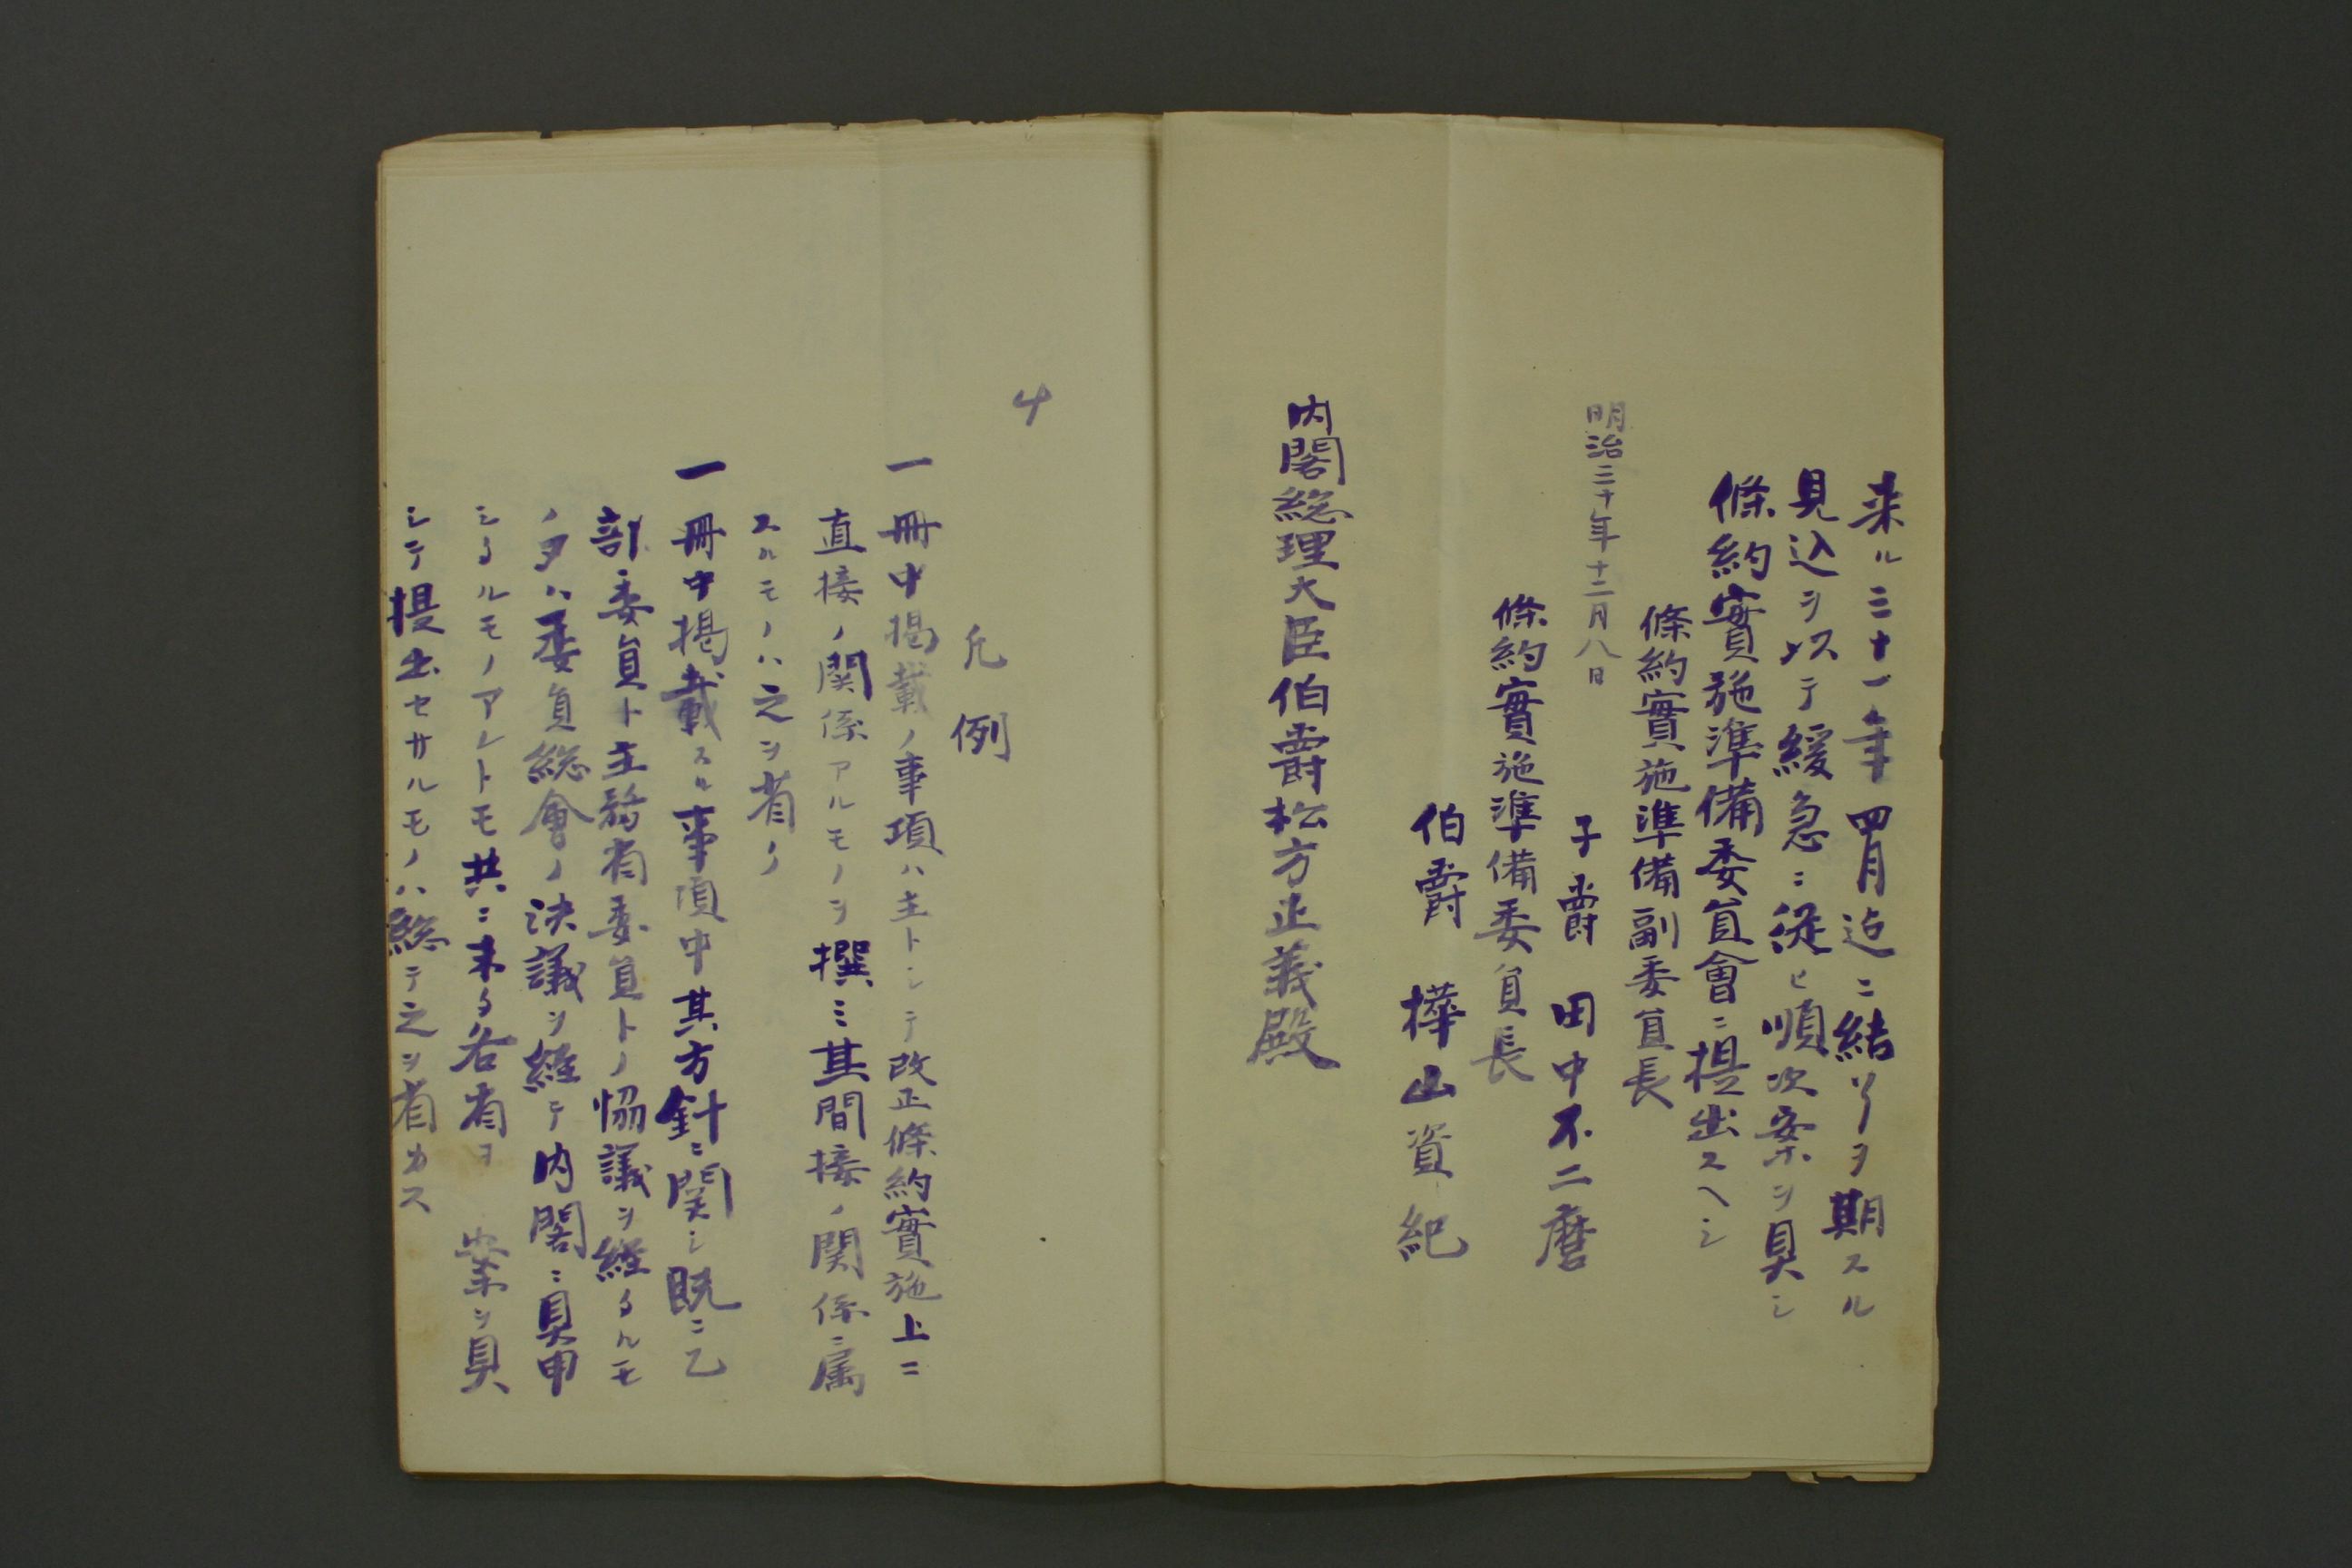 来ル三十一年四月迄ニ結了ヲ期スル
見込ヲ以テ緩急ニ従ヒ順次案ヲ具シ
條約實施準備委員會ニ提出スヘシ
條約實施準備副委員長
明治三十年十二月八日
子爵 田中不二麿
條約實施準備委員長
伯爵 樺山資紀
内閣総理大臣伯爵松方正義殿
4
凡例
一冊中掲載ノ事項ハ主トシテ改正條約實施上ニ
直接ノ関係アルモノヲ撰ミ其間接ノ関係ニ属
スルモノハ之ヲ省ク
一冊中掲載スル事項中其方針ニ関シ既ニ乙
部委員ト主務省委員トノ協議ヲ経タルモ
ノ又ハ委員総會ノ決議ヲ經テ内閣ニ具申
シタルモノアレトモ共ニ未タ各省ヨ 案ヲ具
シテ提出セサルモノハ総テ之ヲ省カス